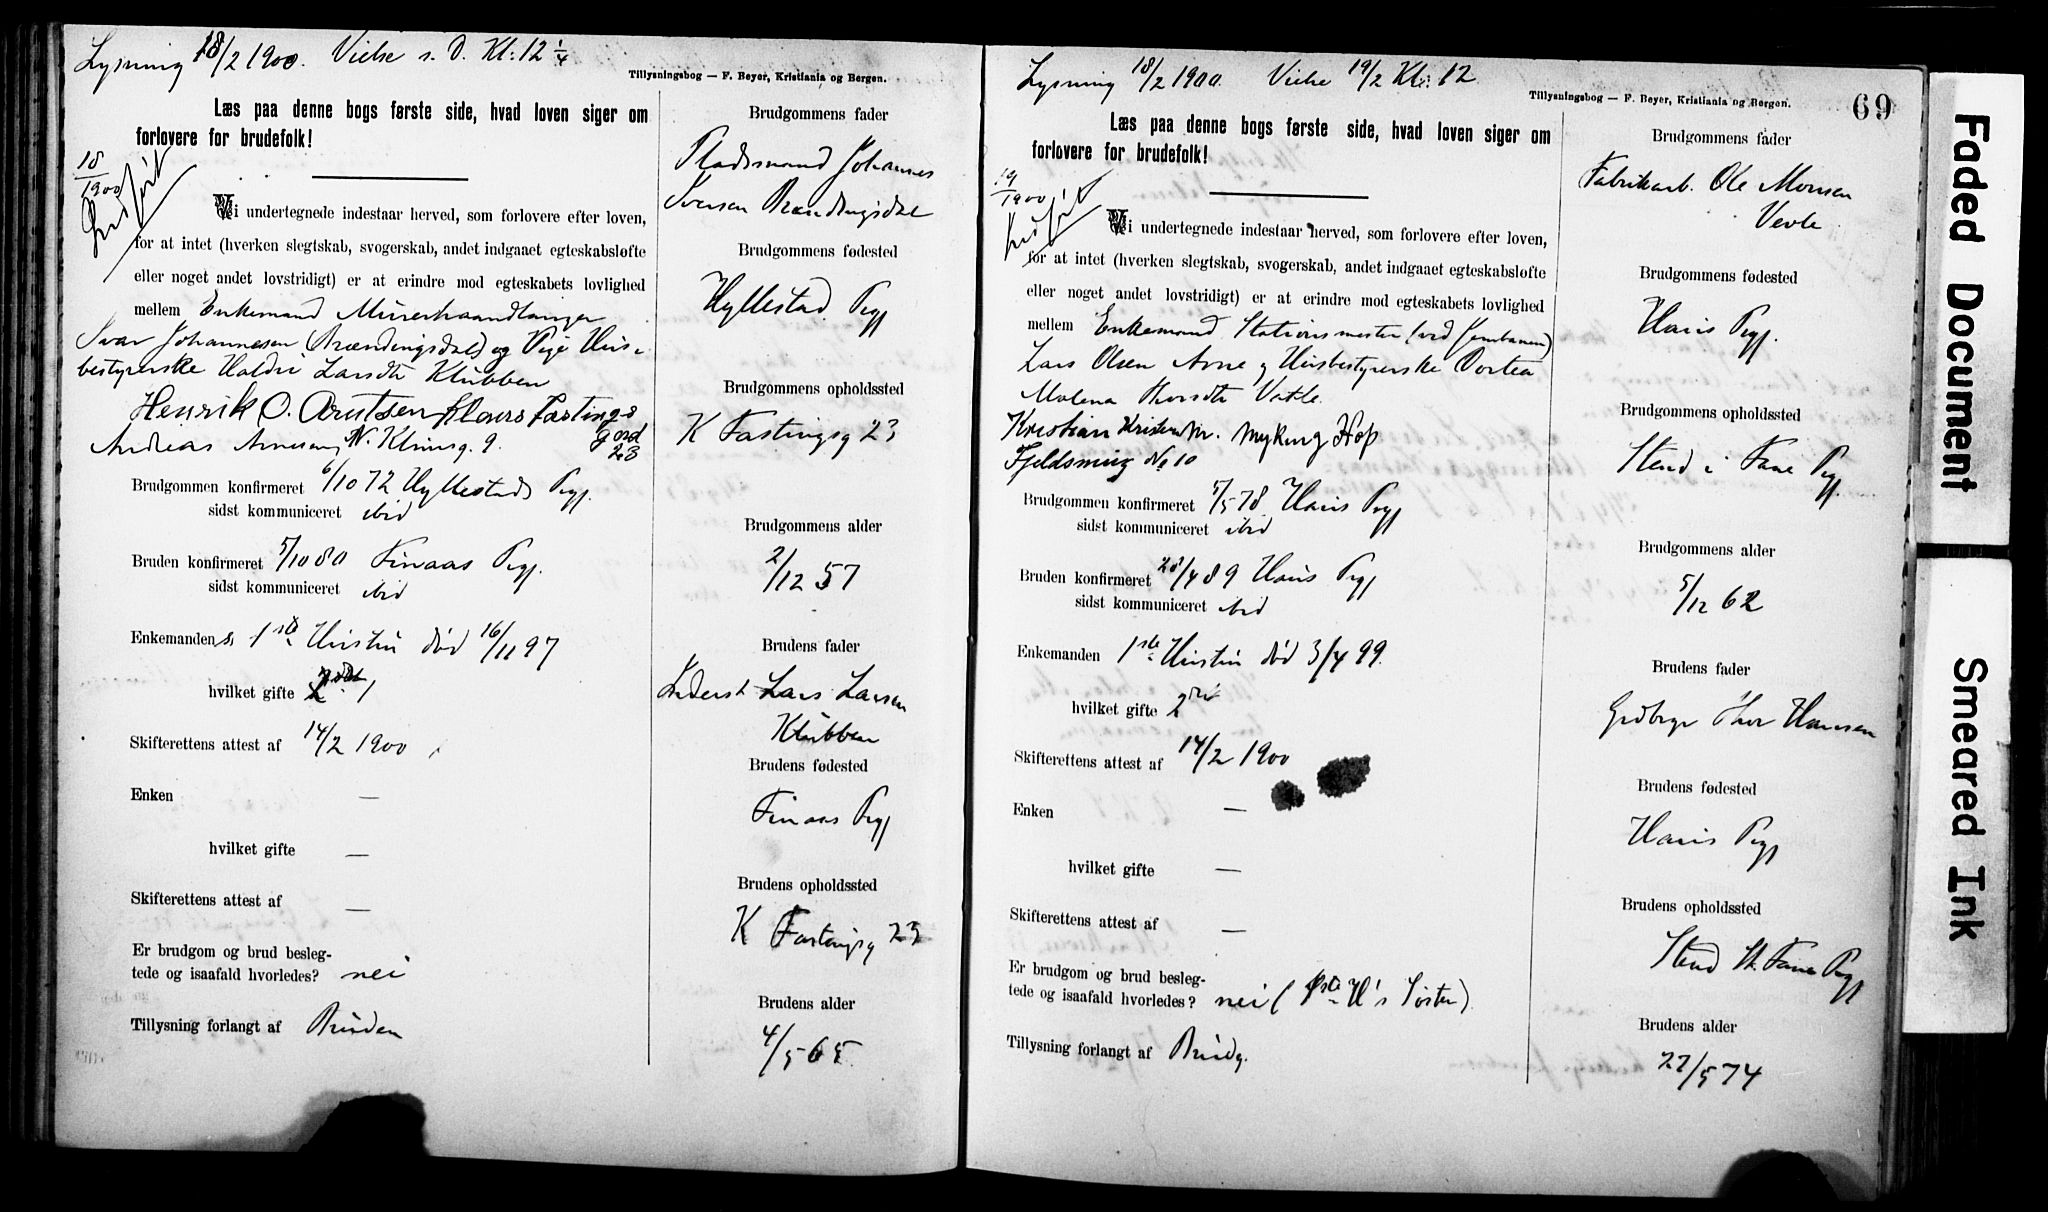 Lysning 18/2 1900. Vielse s. D. Kl: 12 1/4
Tillysningsbog — F. Beyer, Kristiania og Bergen.
18/1900
Indført
Læs paa denne bogs første side, hvad loven siger om
forlovere for brudefolk!
Vi undertegnede indestaar herved, som forlovere efter loven,
for at intet (hverken slegtskab, svogerskab, andet indgaaet egteskabsløfte
eller noget andet lovstridigt) er at erindre mod egteskabets lovlighed
mellem Enkemand Murerhaandlanger
Ivar Johannesen Brændingsdal og Pige Hus-
bestyrerske Valdri Larsdtr Klubben
Henrik O. Arntsen Klaus Fastings
gord
23
Andreas Arnesen N. Klosterg. 9.
Brudgommen konfirmeret 6/10 72 Hyllestad Pgj.
sidst kommuniceret ibid
Bruden konfirmeret 5/10 80 Finaas Pgj.
sidst kommuniceret ibid
Enkemandens 1ste Hustru død 16/11 97
hvilket gifte 1
Skifterettens attest af 14/2 1900
Enken —
hvilket gifte —
Skifterettens attest af —
Er brudgom og brud besleg-
tede og isaafald hvorledes? nei
Tillysning forlangt af Bruden
Brudgommens fader
Pladsmand Johannes
Iversen Brændingsdal
Brudgommens fødested
Hyllestad Pgj
Brudgommens opholdssted
K Fastingsg 23
Brudgommens alder
2/12 57
Brudens fader
Inderst Lars Larsen
Klubben
Brudens fødested
Finaas Pgj
Brudens opholdssted
K Fastingsg 23
Brudens alder
4/5 65
Lysning 18/2 1900. Vielse 19/2 Kl: 12
Tillysningsbog — F. Beyer, Kristiania og Bergen.
69
19/1900
Indført
Læs paa denne bogs første side, hvad loven siger om
forlovere for brudefolk!
Vi undertegnede indestaar herved, som forlovere efter loven,
for at intet (hverken slegtskab, svogerskab, andet indgaaet egteskabsløfte
eller noget andet lovstridigt) er at erindre mod egteskabets lovlighed
mellem Enkemand Stationsmester (ved Jernbanen)
Lars Olsen Arne og Husbestyrerske Dortea
Malena Thorsdtr
Kristian Kristensen. Myking Hop
Fjeldsmug No 10
Brudgommen konfirmeret 5/5 78 Haus Pgj
sidst kommuniceret ibid
Bruden konfirmeret 28/4 89 Haus Pgj
sidst kommuniceret ibid
Enkemanden 1ste Hustru død 3/4 99.
hvilket gifte 2det
Skifterettens attest af 14/2 1900
Enken —
hvilket gifte —
Skifterettens attest af —
Er brudgom og brud besleg-
tede og isaafald hvorledes? nei (1ste H's Søster).
Tillysning forlangt af Brudg.
Brudgommens fader
Fabrikarb. Ole Monsen
Brudgommens fødested
Haus Pgj.
Brudgommens opholdssted
Stend i Fane Pgj.
Brudgommens alder
5/12 62
Brudens fader
Grdbrgr Thor Hansen
Brudens fødested
Haus Pgj
Brudens opholdssted
Stend St. Fane Pgj
Brudens alder
27/5 74
Faded Document
Smeared Ink